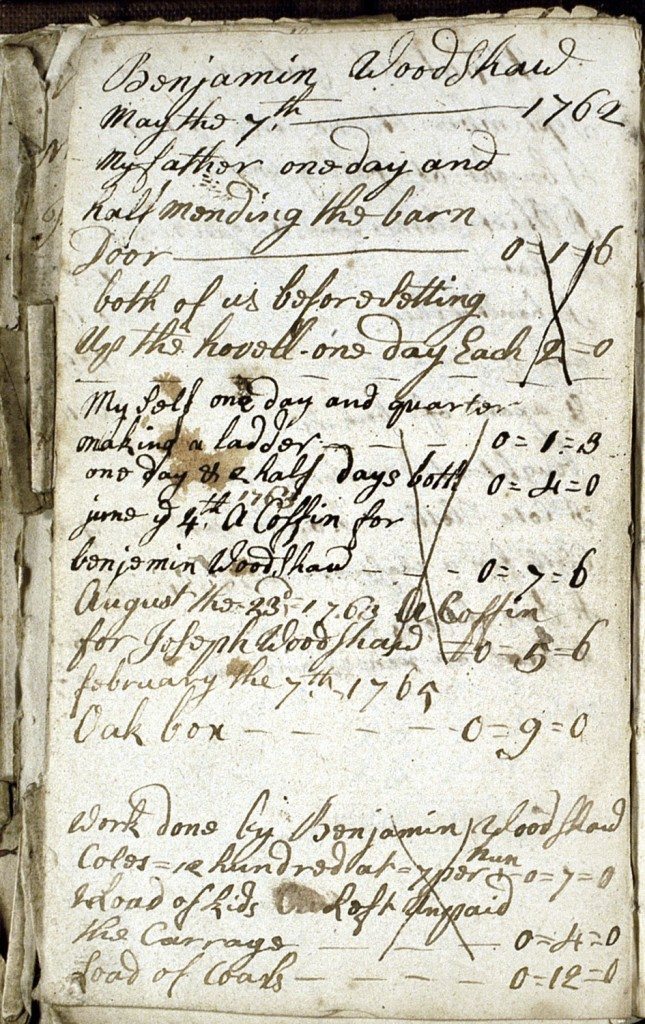 Benjamin Woodshaw
May the 7th 1762
My father one day and
half mending the barn
Door 0=1=6
both of us before setting
Up the hovell one day Each 2=0
My self one day and quarter
making a ladder 0=1=3
one day & a half days both 0=4=0
june ye 4th 1763 A Coffin for
benjemin Woodshaw 0=7=6
August the 23d=1763 A Coffin
for Joseph Woodshaw =0=5=6
february the 7th 1765
Oak box 0=9=0
Work done by Benjamin Woodshaw
Coles = hundred at =7 per hun 0=7=0
Load of kids Left unpaid
the Carrage 0=4=0
Load of Coals 0=12=0